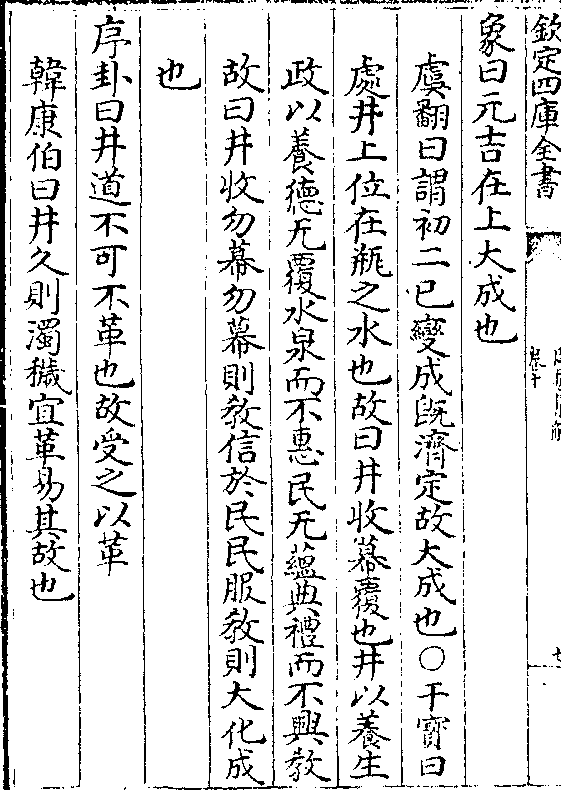 欽定四庫全書
卷十
象曰元吉在上大成也
虞翻曰謂初二已變成既濟定故大成也○干寳曰
處井上位在瓶之水也故曰井收幕覆也井以養生
政以養德无覆水泉而不惠民无蘊典禮而不興教
故曰井收勿幕勿幕則教信於民民服教則大化成
也
序卦曰井道不可不革也故受之以革
韓康伯曰井久則濁穢宜革易其故也